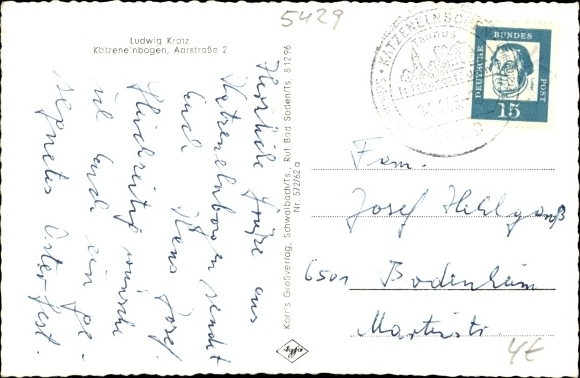 5429
Ludwig Kratz
Katzenelnbogen, Aarstraße 2
Herzliche Grüße aus
Katzenelnbogen sendet
Euch Hans Josef.
Gleichzeitig wünsche
ich Euch ein ge-
segnetes Osterfest.
Korr's Großverlag, Schwalbach/Ts., Ruf Bad Soden/Ts. 81296
Nr. 572/62a
Agfa
KATZENELNBOGEN
TAUNUS
DEUTSCHE BUNDESPOST
15
Fam.
Josef
6501 Bodenheim
Martinstr
4€